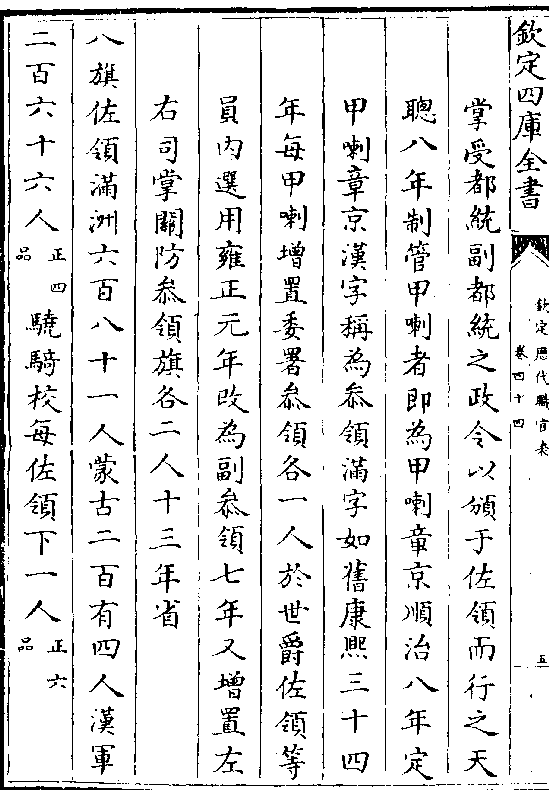 欽定四庫全書
欽定歷代職官表
卷四十四
五
掌受都統副都統之政令以頒于佐領而行之天
聰八年制管甲喇者即為甲喇章京順治八年定
甲喇章京漢字稱為叅領滿字如舊康熙三十四
年每甲喇增置委署叅領各一人於世爵佐領等
員内選用雍正元年改為副叅領七年又增置左
右司掌關防叅領旗各二人十三年省
八旗佐領滿洲六百八十一人蒙古二百有四人漢軍
二百六十六人正四品驍騎校每佐領下一人正六品